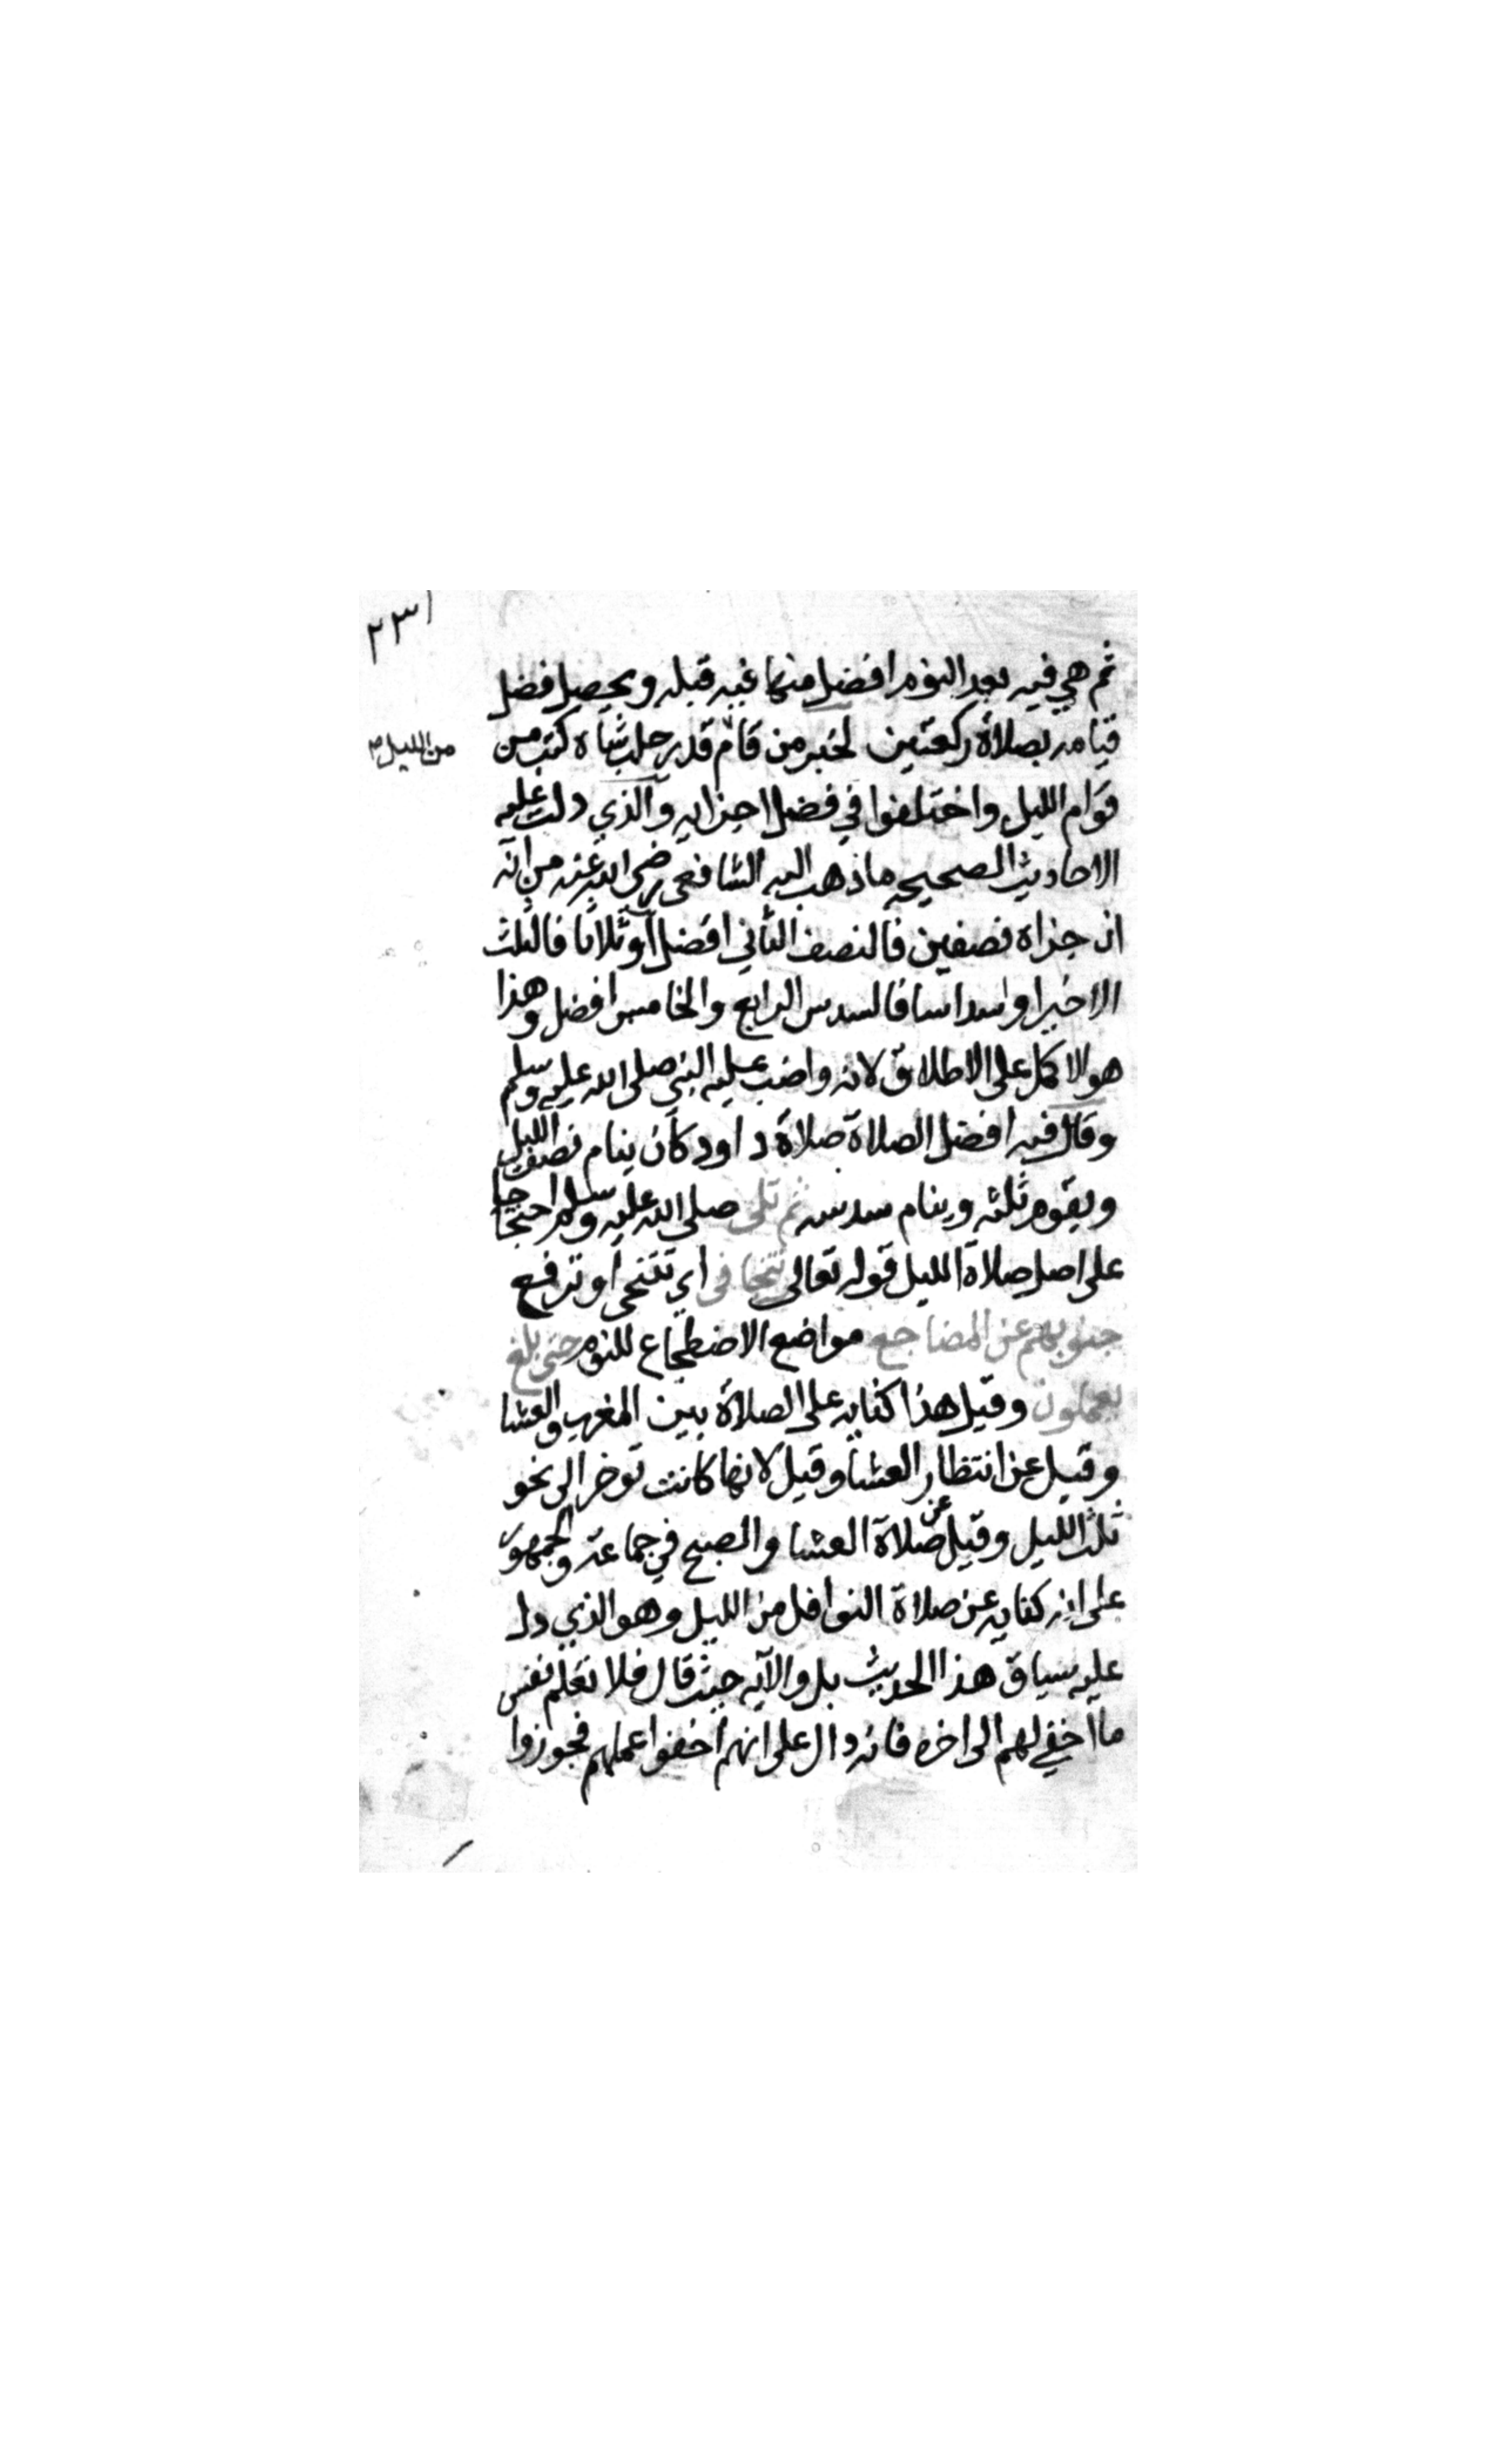 ٢٣١
ثم هي فيه بعد النوم افضل منها فيه قبله ويحصل فضل
قيامه بصلاة ركعتين لخبر من قام قدر حلب شاة كتب من
من الليل م
قوام الليل واختلفوا في فضل اجزايه والذي دلت عليه
الاحاديث الصحيحه ماذهب اليه الشافعي رضي الله عنه من انه
ان جزاه نصفين فالنصف الثاني افضل او ثلاثا فالثلث
الاخير او اسداسا فالسدس الرابع والخامس افضل وهذا
هو الاكمل على الاطلاق لانه واضب عليه النبي صلى الله عليه وسلم
وقال فيه افضل الصلاة صلاة داود كان ينام نصف الليل
ويقوم ثلثه وينام سدسه ثم تلى صلى الله عليه وسلم احتجاجا
على اصل صلاة الليل قوله تعالى تتجافى اي تتنحى او ترفع
جنوبهم عن المضاجع مواضع الاضطجاع للنوم حتى بلغ
يعملون وقيل هذا كنايه على الصلاة بين المغرب والعشا
وقيل عن انتظار العشا وقيل لانها كانت توخر الى نحو
ثلث الليل وقيل عن صلاة العشا والصبح في جماعة والجمهور
على انه كنايه عن صلاة النوافل من الليل وهو الذي دل
عليه سياق هذا الحديث بل والآيه حيث قال فلا تعلم نفس
ما اخفي لهم الى اخره فانه دال على انهم اخفوا عملهم فجوزوا